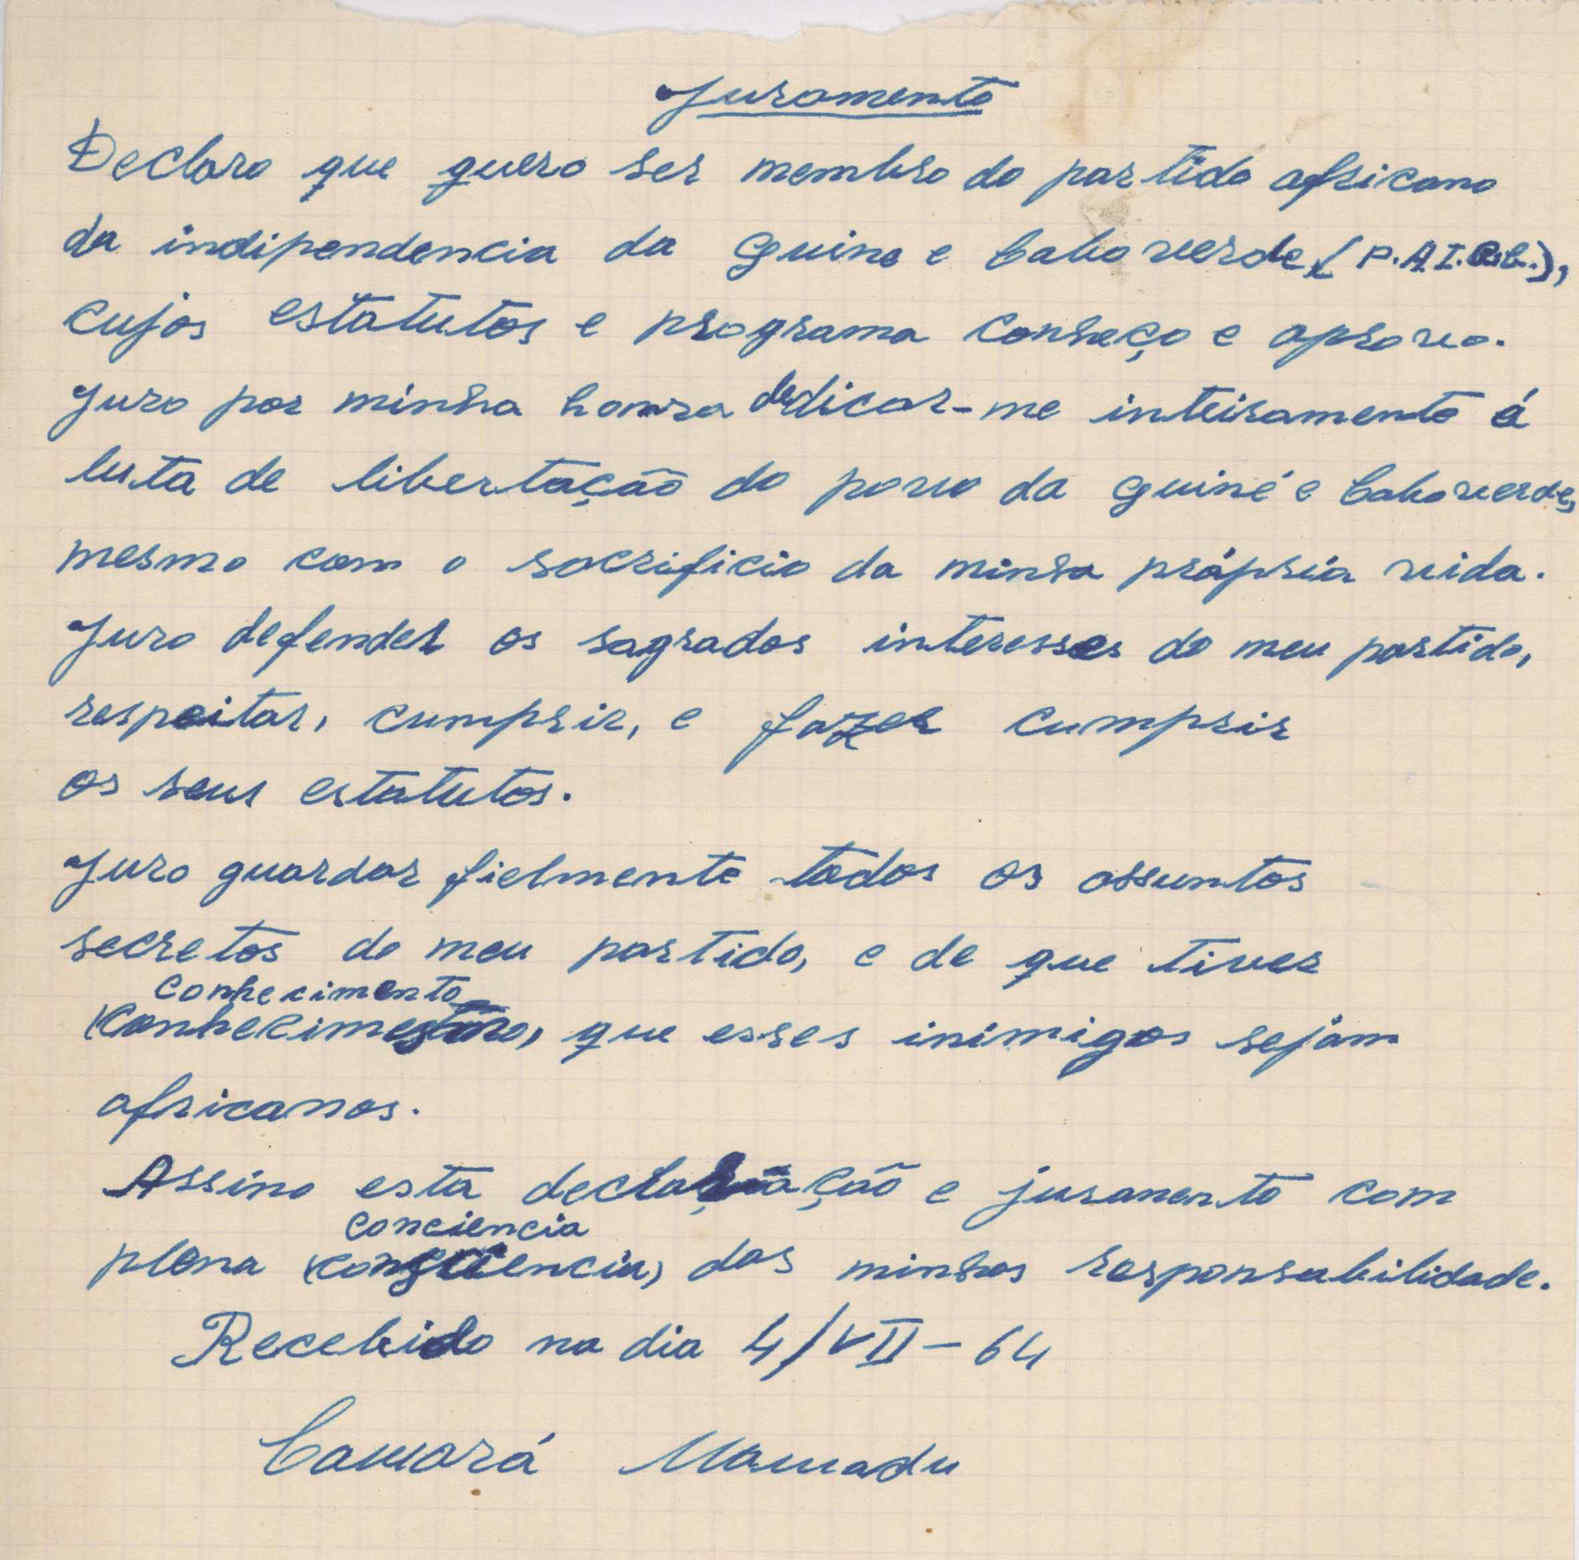 Juramento
Declaro que quero ser membro do partido africano
da indipendencia da Guine e Caboverde, (P.A.I.G.C.),
cujos estatutos e programa conheço e aprovo.
Juro por minha honra dedicar-me inteiramente á
luta de libertação do povo da Guiné e Caboverde,
mesmo com o sacrificio da minha própria vida.
Juro defender os sagrados interesses do meu partido,
respeitar, cumprir, e fazer cumprir
os seus estatutos.
Juro guardar fielmente todos os assuntos
secretos do meu partido, e de que tiver
conhecimento
(conhecimento), que esses inimigos sejam
africanos.
Assino esta declaração e juramento com
conciencia
plena (consciencia) das minhas responsabilidade.
Recebido na dia 4/VII-64
Camará Mamadu